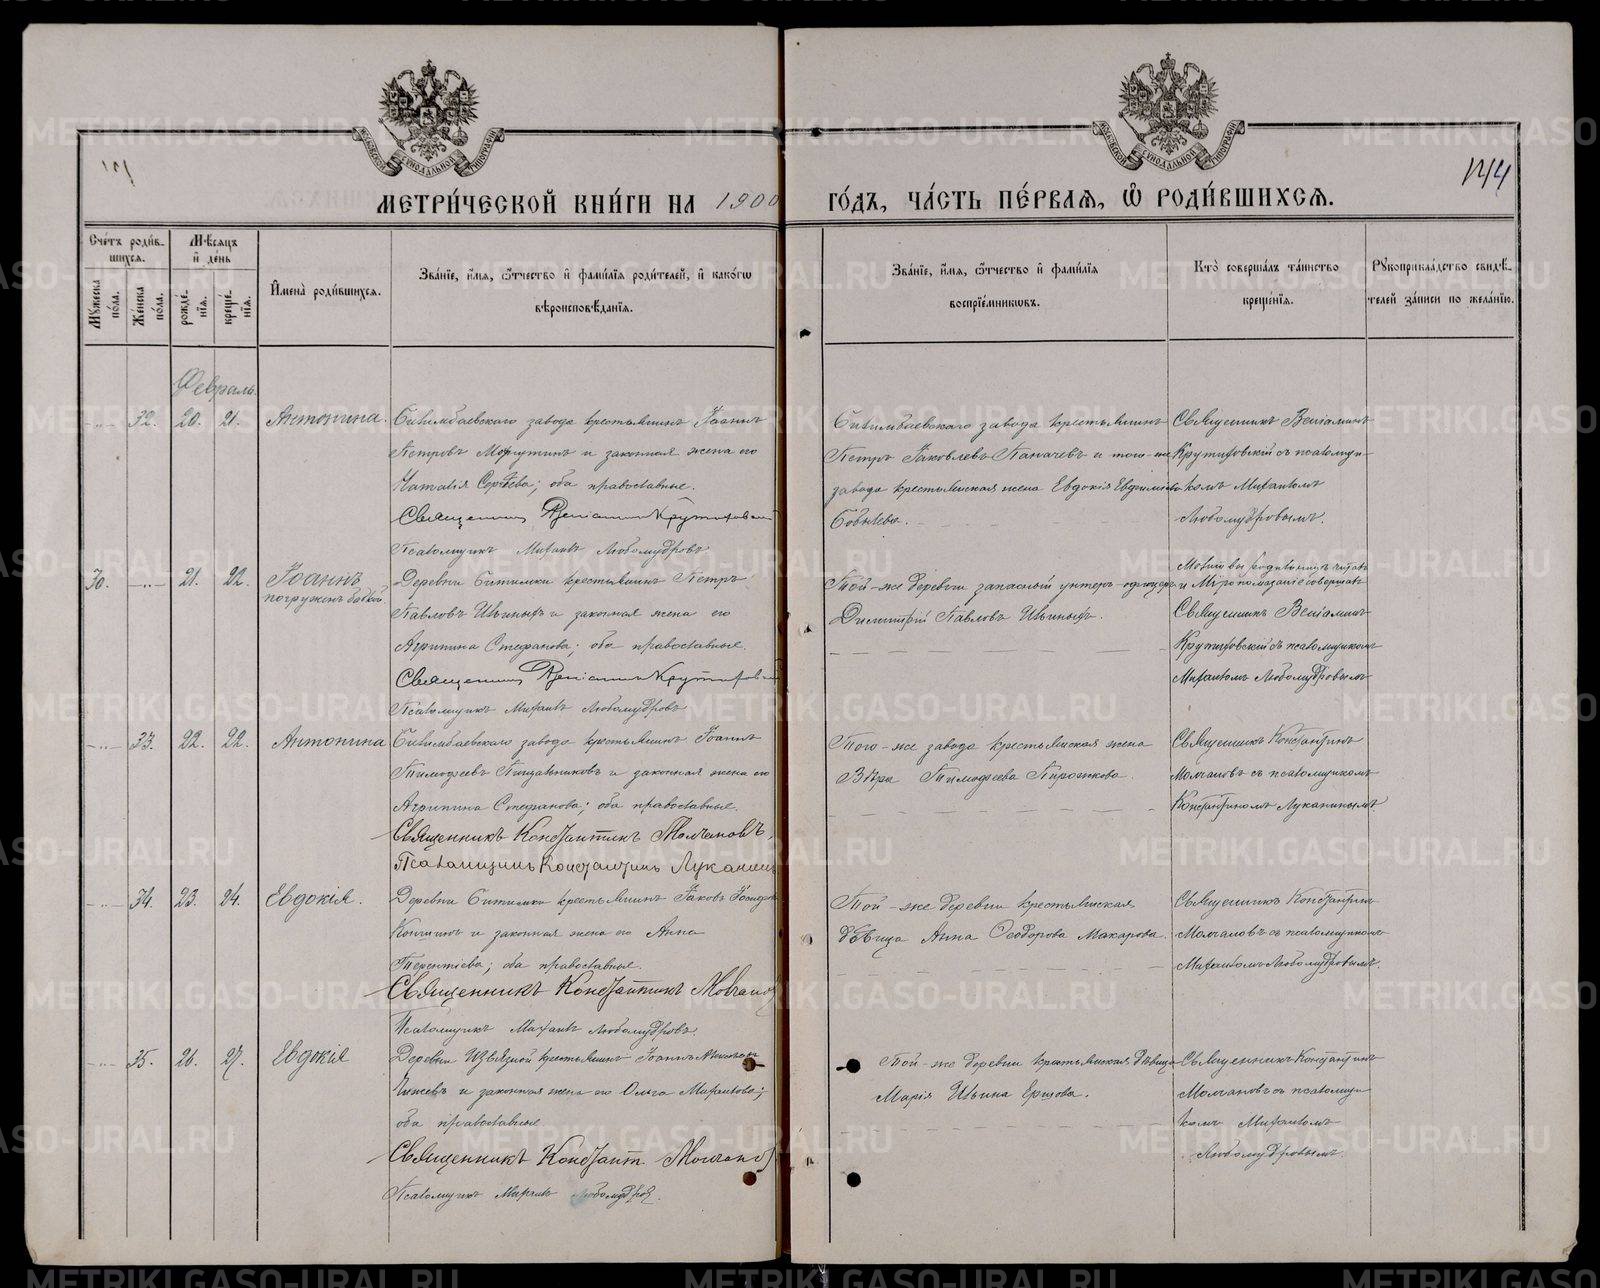 144
МЕТРИ́ЧЕСКОЙ КНИ́ГИ НА 1900 ГО́ДЪ, ЧА́СТЬ ПЕ́РВАЯ, Ѿ РОДИ́ВШИХСЯ.
Сче́тъ роди́вшихся.
Му́жеска по́ла.
Же́нска по́ла.
Мѣ́сяцъ и де́нь
рожде́нїя.
креще́нїя.
И҆мена̀ роди́вшихся.
Зва́нїе, и҆́мя, ѻ҆́тчество и҆ фами́лїя роди́телей, и҆ како́гѡ
вѣроисповѣ́данїя.
Зва́нїе, и҆́мя, ѻ҆́тчество и҆ фами́лїя
воспрїе́мниковъ.
Кто̀ соверша́лъ та́инство
креще́нїя.
Рꙋкоприкла́дство свидѣ́телей за́писи по жела́нїю.
Февраль.
32. 20. 21. Антонина.
Билимбаевскаго завода крестьянинъ Іоаннъ
Петровъ и законная жена его
Наталія Сергѣева; оба православные.
Священникъ Веніаминъ Крутиховскій
Псаломщикъ Михаилъ Любомудровъ
Билимбаевскаго завода крестьянинъ
Петръ Іаковлевъ Паначевъ и того-же
завода крестьянская жена Евдокія Евфиміева
Священникъ Веніаминъ
Крутиховскій съ псаломщи-
комъ Михаиломъ
Любомудровымъ.
30. 21. 22. Іоаннъ
погруженъ бабкой
Деревни Битимки крестьянинъ Петръ
Павловъ Ильиныхъ и законная жена его
Агрипина Стефанова; оба православные.
Священникъ Веніаминъ Крутиховскій
Псаломщикъ Михаилъ Любомудровъ
Той-же деревни запасный унтеръ-офицеръ
Димитрій Павловъ Ильиныхъ.
и Мѵропомазаніе совершалъ
Священникъ Веніаминъ
Крутиховскій съ псаломщикомъ
Михаиломъ Любомудровымъ
33. 22. 22. Антонина
Билимбаевскаго завода крестьянинъ Іоаннъ
Тимофеевъ и законная жена его
Агрипина Стефанова; оба православные.
Священникъ Константинъ Молчановъ,
Псаломщикъ Константинъ Луканинъ
Того-же завода крестьянская жена
Вѣра Тимофеева Пирожкова.
Священникъ Константинъ
Молчановъ съ псаломщикомъ
Константиномъ Луканинымъ
34. 23. 24. Евдокія.
Деревни Битимки крестьянинъ Іаковъ
и законная жена его Анна
Терентіева; оба православные.
Священникъ Константинъ Молчановъ
Псаломщикъ Михаилъ Любомудровъ
Той-же деревни крестьянская
дѣвица Анна Ѳеодорова Макарова.
Священникъ Константинъ
Молчановъ съ псаломщикомъ
Михаиломъ Любомудровымъ.
35. 26. 27. Евдокія
Деревни Извѣздной крестьянинъ Іоаннъ
и законная жена его Ольга Михаилова;
оба православные
Священникъ Констант. Молчановъ
Псаломщикъ Михаилъ Любомудровъ.
Той-же деревни крестьянская дѣвица
Марія Ильина Ершова.
Священникъ Константинъ
Молчановъ съ псаломщи-
комъ Михаиломъ
Любомудровымъ.
METRIKI.GASO-URAL.RU